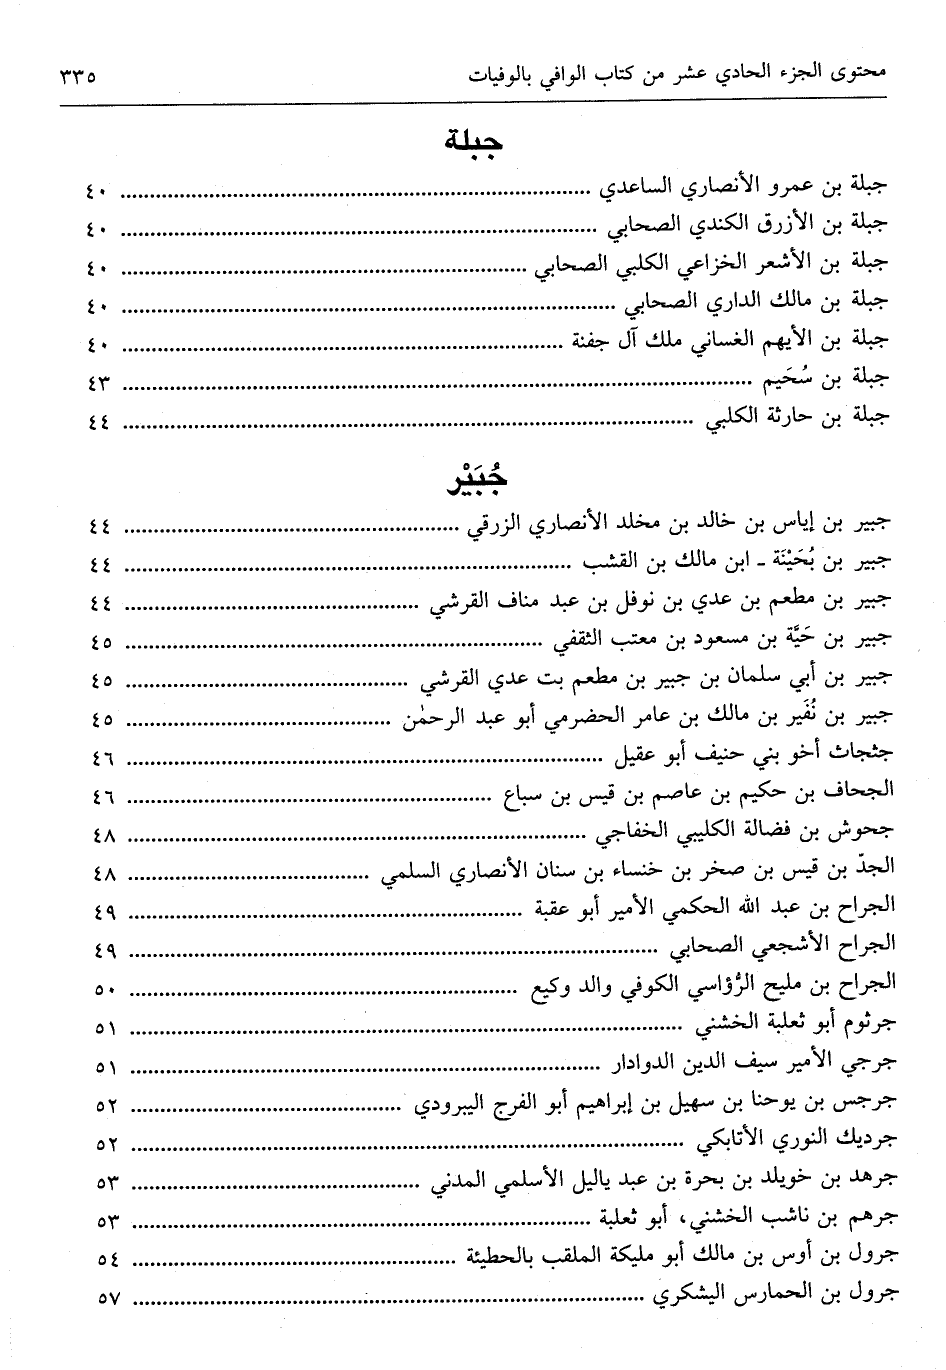 محتوى الجزء الحادي عشر من كتاب الوافي بالوفيات ٣٣٥
جبلة
جبلة بن عمرو الأنصاري الساعدي ................ ٤٠
جبلة بن الأزرق الكندي الصحابي ................ ٤٠
جبلة بن الأشعر الخزاعي الكلبي الصحابي ................ ٤٠
جبلة بن مالك الداري الصحابي ................ ٤٠
جبلة بن الأيهم الغساني ملك آل جفنة ................ ٤٠
جبلة بن سُحَيم ................ ٤٣
جبلة بن حارثة الكلبي ................ ٤٤
جُبَيْر
جبير بن إياس بن خالد بن مخلد الأنصاري الزرقي ................ ٤٤
جبير بن بُحَيْنَة - ابن مالك بن القشب ................ ٤٤
جبير بن مطعم بن عدي بن نوفل بن عبد مناف القرشي ................ ٤٤
جبير بن حَيَّة بن مسعود بن معتب الثقفي ................ ٤٥
جبير بن أبي سلمان بن جبير بن مطعم بت عدي القرشي ................ ٤٥
جبير بن نُفَير بن مالك بن عامر الحضرمي أبو عبد الرحمٰن ................ ٤٥
جثجاث أخو بني حنيف أبو عقيل ................ ٤٦
الجحاف بن حكيم بن عاصم بن قيس بن سباع ................ ٤٦
جحوش بن فضالة الكليبي الخفاجي ................ ٤٨
الجدّ بن قيس بن صخر بن خنساء بن سنان الأنصاري السلمي ................ ٤٨
الجراح بن عبد الله الحكمي الأمير أبو عقبة ................ ٤٩
الجراح الأشجعي الصحابي ................ ٤٩
الجراح بن مليح الرُّؤاسي الكوفي والد وكيع ................ ٥٠
جرثوم أبو ثعلبة الخشني ................ ٥١
جرجي الأمير سيف الدين الدوادار ................ ٥١
جرجس بن يوحنا بن سهيل بن إبراهيم أبو الفرج اليبرودي ................ ٥٢
جرديك النوري الأتابكي ................ ٥٢
جرهد بن خويلد بن بحرة بن عبد ياليل الأسلمي المدني ................ ٥٣
جرهم بن ناشب الخشني، أبو ثعلبة ................ ٥٣
جرول بن أوس بن مالك أبو مليكة الملقب بالحطيئة ................ ٥٤
جرول بن الحمارس اليشكري ................ ٥٧